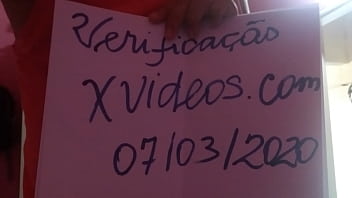 Verificação
Xvideos.com
07/03/2020